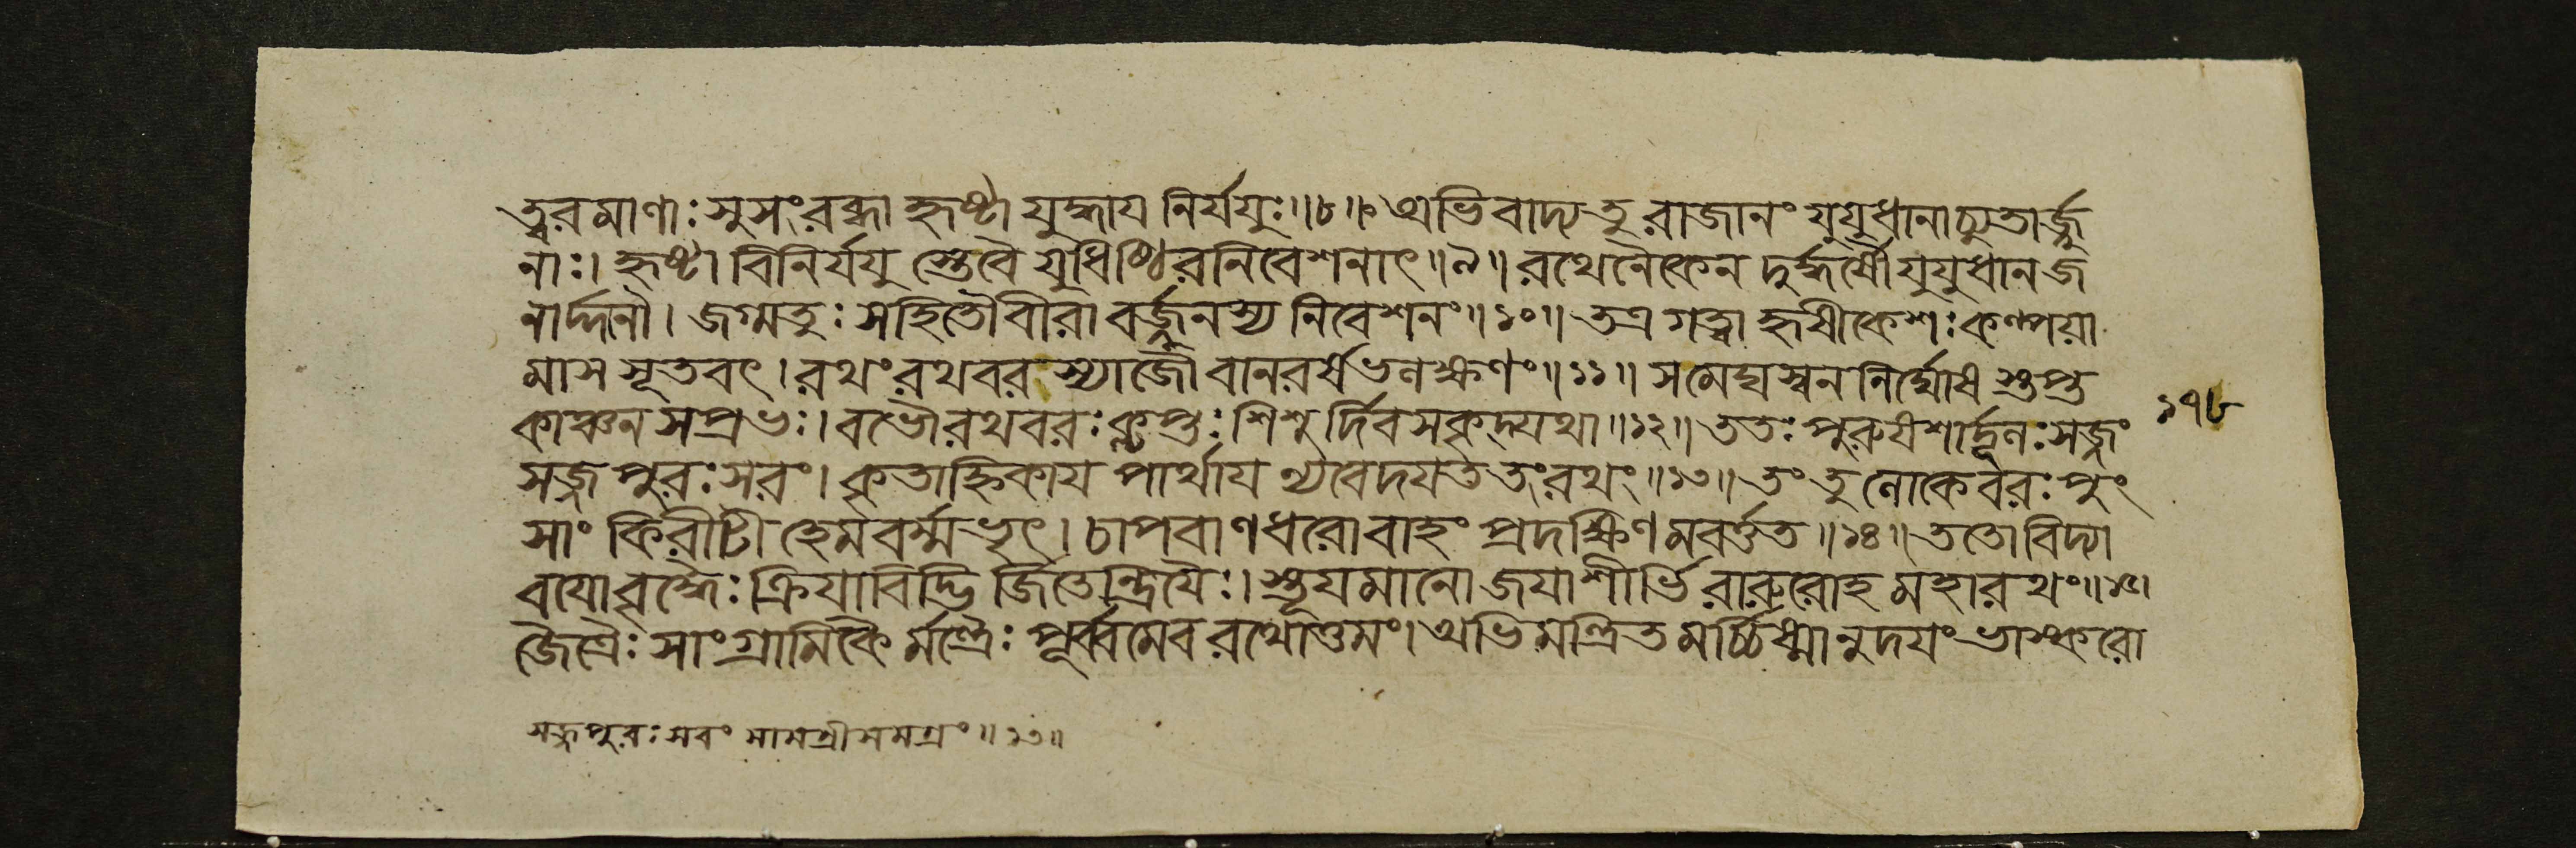 ত্বরমাণাঃ সুসংরব্ধা হৃষ্টা যুদ্ধায নির্যযুঃ॥৮॥ অভিবাদ্য তু রাজানং যুযুধানাচ্যুতার্জ্জু
নাঃ। হৃষ্টা বিনির্যযুস্তে বৈ যুধিষ্ঠিরনিবেশনাৎ॥৯॥ রথেনৈকেন দুর্দ্ধর্ষৌ যুযুধানজ
নার্দ্দনৌ। জগ্মতুঃ সহিতৌ বীরাবর্জ্জুনস্য নিবেশনং॥১০॥ তত্র গত্বা হৃষীকেশঃ কল্পয়া
মাস সূতবৎ। রথং রথবরস্যাজৌ বানরর্ষভলক্ষণং॥১১॥ স মেঘস্বননির্ঘোষস্তপ্ত
কাঞ্চনসপ্রভঃ। বভৌ রথবরঃ কৢপ্তঃ শিশুর্দিবসকৃদ্যথা॥১২॥ ততঃ পুরুষশার্দ্দূলঃ সজ্জং
সজ্জপুরঃসরং। কৃতাহ্নিকায পার্থায ন্যবেদযত তং রথং॥১৩॥ তং তু লোকে বরঃ পুং
সাং কিরীটী হেমবর্ম্মভৃৎ। চাপবাণধরো বাহং প্রদক্ষিণমবর্ত্তত॥১৪॥ ততো বিদ্যা
বযোবৃদ্ধৈঃ ক্রিযাবিদ্ভির্জিতেন্দ্রিযৈঃ। স্তূযমানো জযাশীর্ভিরারুরোহ মহারথং॥১৫।
জৈত্রৈঃ সাংগ্রামিকৈর্মন্ত্রৈঃ পূর্ব্বমেব রথোত্তমং। অভিমন্ত্রিতমর্চ্চিষ্মানুদযং ভাস্করো
১৭৮
সজ্জপুরঃসরং সামগ্রীসমগ্রং॥১৩॥